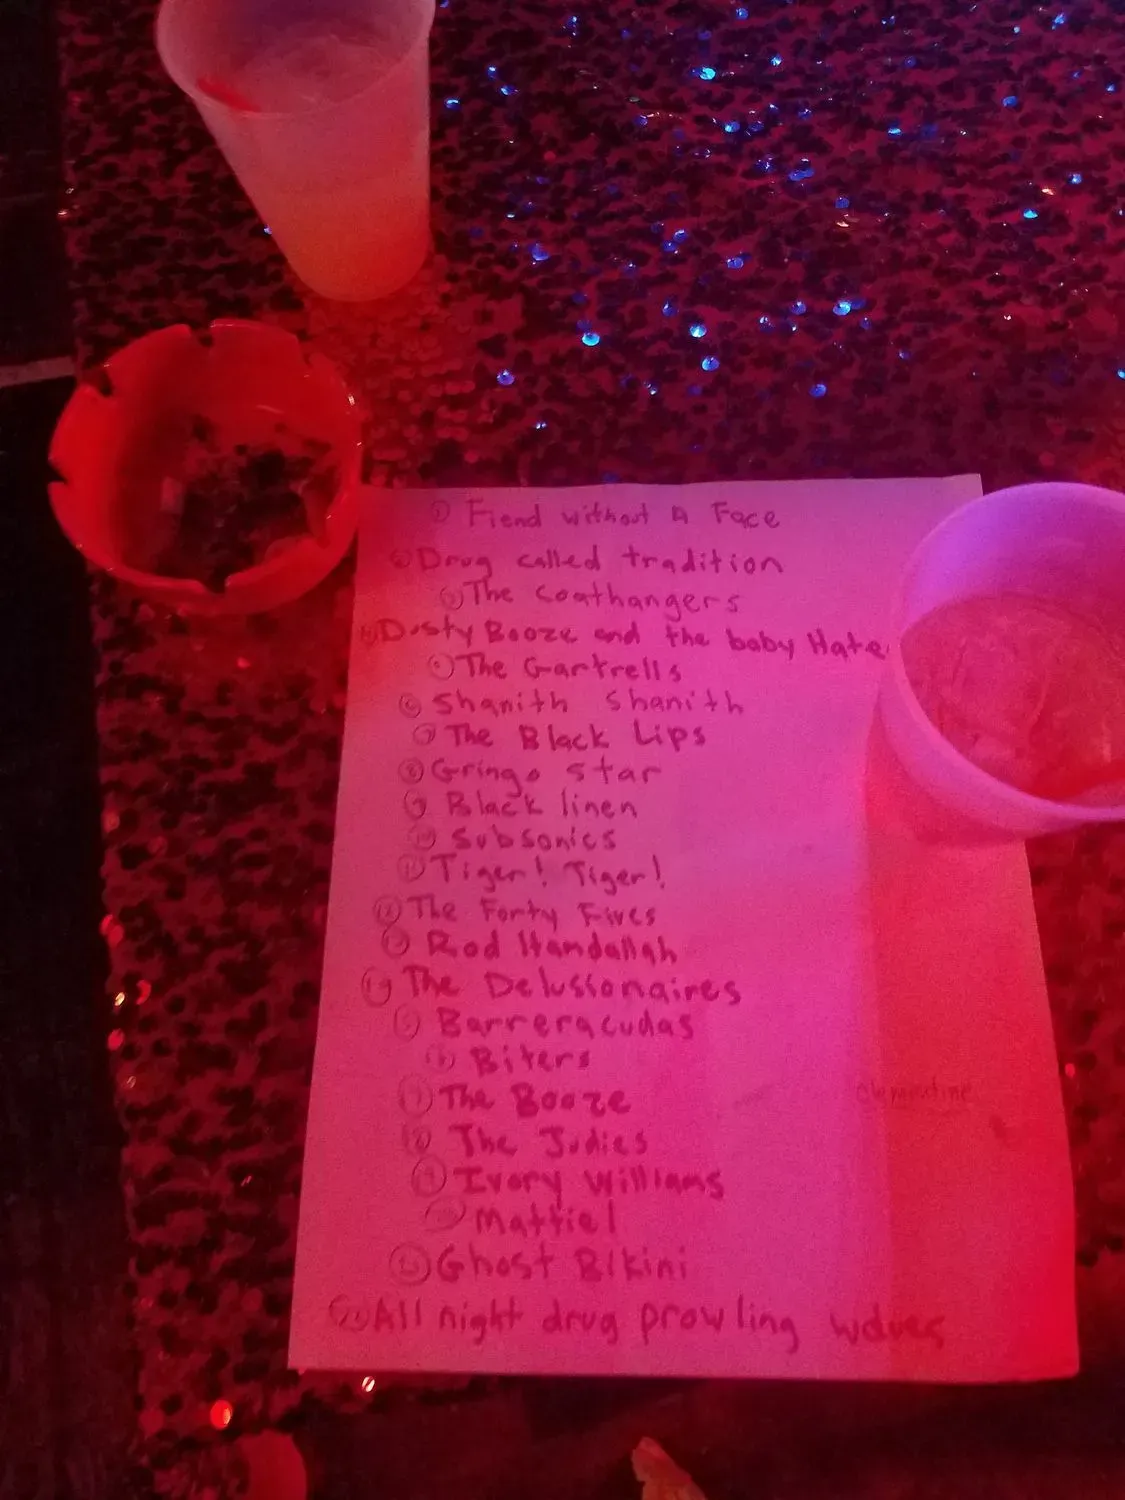 ① Fiend without A Face
② Drug called tradition
③ The Coathangers
④ Dusty Booze and the baby Hate
⑤ The Gartrells
⑥ Shanith Shanith
⑦ The Black Lips
⑧ Gringo Star
⑨ Black linen
⑩ Subsonics
⑪ Tiger! Tiger!
⑫ The Forty Fives
⑬ Rod Hamdallah
⑭ The Delusionaires
⑮ Barreracudas
⑯ Biters
⑰ The Booze
⑱ The Judies
⑲ Ivory Williams
⑳ Mattiel
㉑ Ghost Bikini
㉒ All night drug prowling wolves